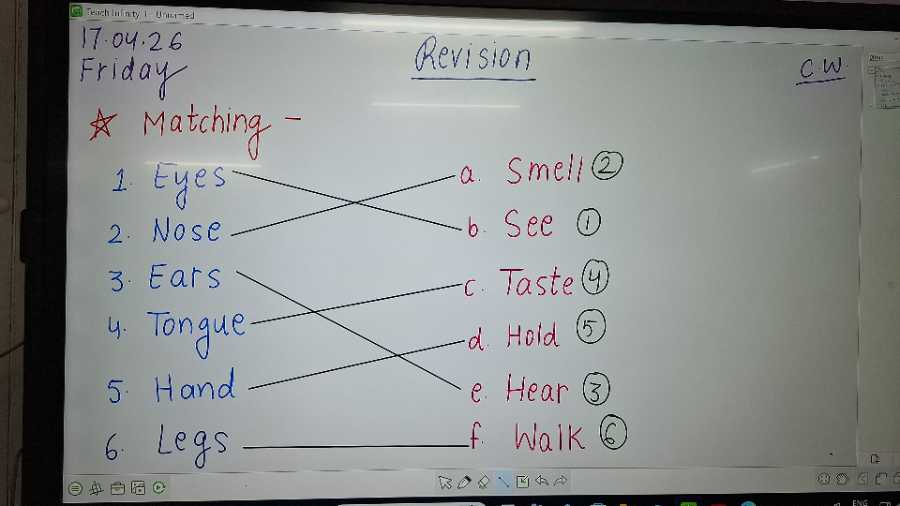 Teach Infinity 1 - Unnamed
17.04.26
Friday
Revision
C.W.
☆ Matching -
1. Eyes
a. Smell ②
2. Nose
b. See ①
3. Ears
c. Taste ④
4. Tongue
d. Hold ⑤
5. Hand
e. Hear ③
6. Legs
f. Walk ⑥
ENG